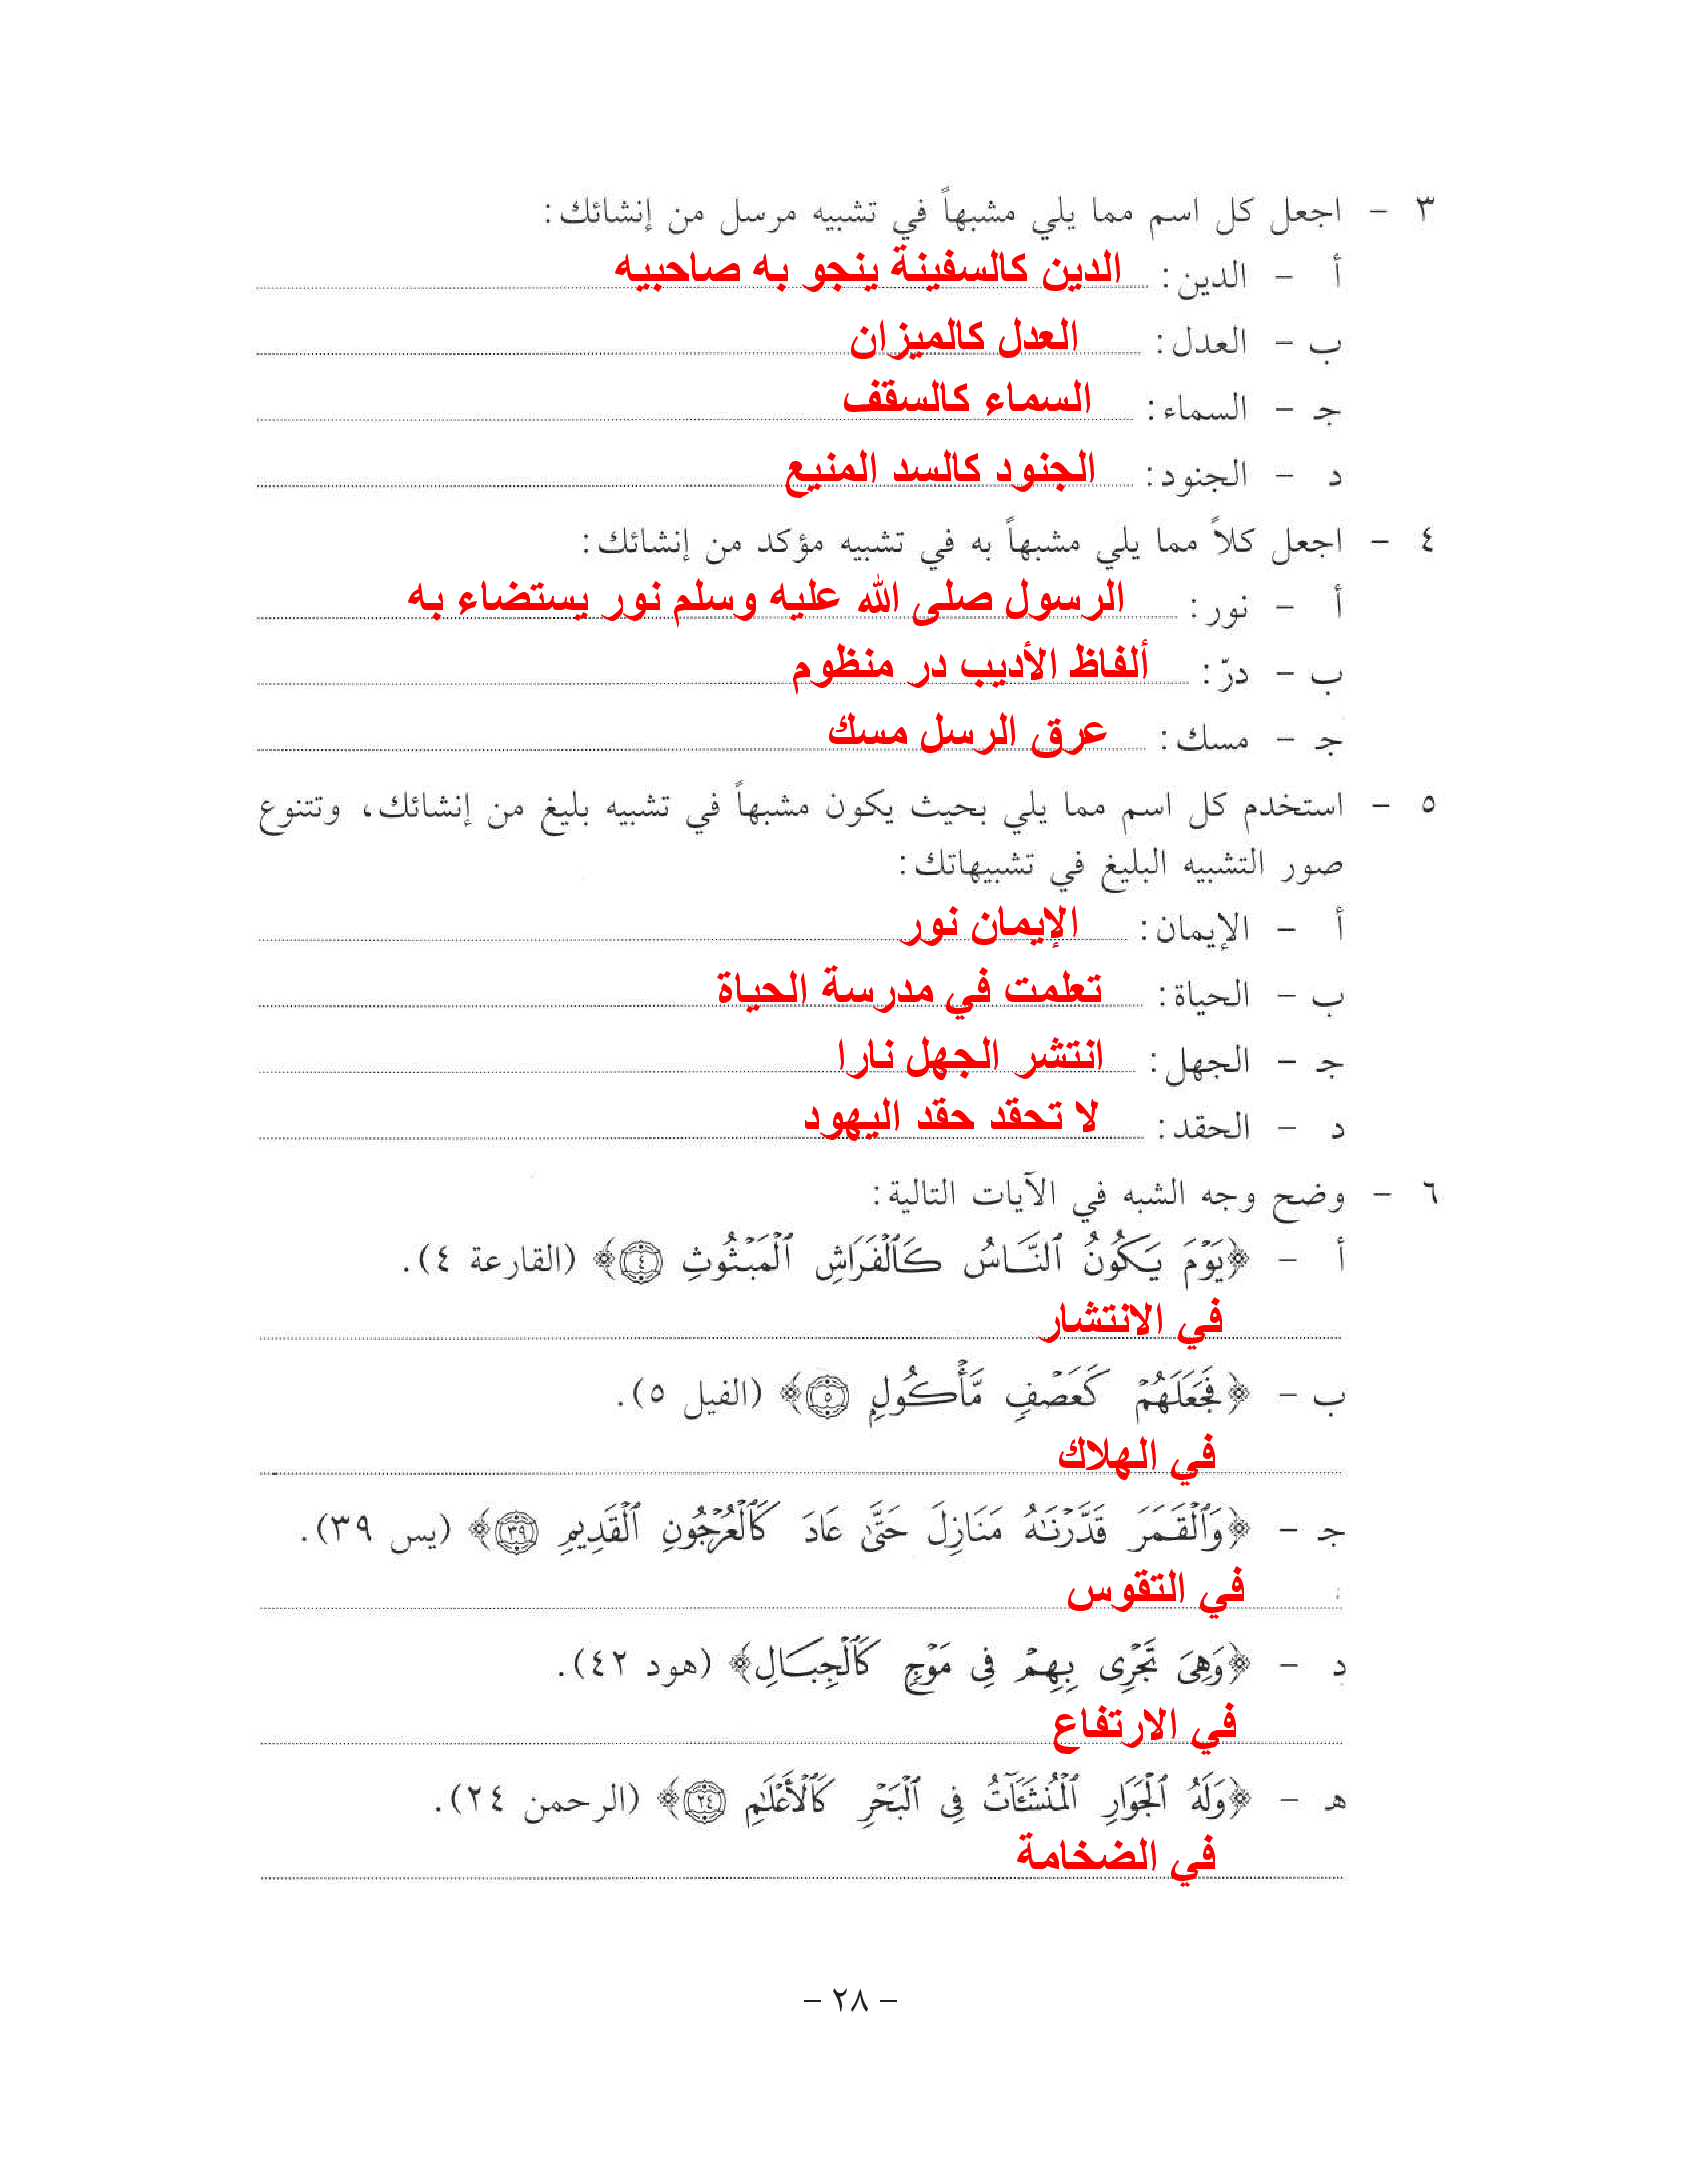 ٣ - اجعل كل اسم مما يلي مشبهاً في تشبيه مرسل من إنشائك:
أ - الدين: الدين كالسفينة ينجو به صاحبيه
ب - العدل: العدل كالميزان
جـ - السماء: السماء كالسقف
د - الجنود: الجنود كالسد المنيع
٤ - اجعل كلاً مما يلي مشبهاً به في تشبيه مؤكد من إنشائك:
أ - نور: الرسول صلى الله عليه وسلم نور يستضاء به
ب - درّ: ألفاظ الأديب در منظوم
جـ - مسك: عرق الرسل مسك
٥ - استخدم كل اسم مما يلي بحيث يكون مشبهاً في تشبيه بليغ من إنشائك، وتتنوع
صور التشبيه البليغ في تشبيهاتك:
أ - الإيمان: الإيمان نور
ب - الحياة: تعلمت في مدرسة الحياة
جـ - الجهل: انتشر الجهل نارا
د - الحقد: لا تحقد حقد اليهود
٦ - وضح وجه الشبه في الآيات التالية:
أ - ﴿يَوْمَ يَكُونُ ٱلنَّاسُ كَٱلْفَرَاشِ ٱلْمَبْثُوثِ ٤﴾ (القارعة ٤).
في الانتشار
ب - ﴿فَجَعَلَهُمْ كَعَصْفٍ مَّأْكُولٍ ٥﴾ (الفيل ٥).
في الهلاك
جـ - ﴿وَٱلْقَمَرَ قَدَّرْنَٰهُ مَنَازِلَ حَتَّىٰ عَادَ كَٱلْعُرْجُونِ ٱلْقَدِيمِ ٣٩﴾ (يس ٣٩).
في التقوس
د - ﴿وَهِىَ تَجْرِى بِهِمْ فِى مَوْجٍ كَٱلْجِبَالِ﴾ (هود ٤٢).
في الارتفاع
هـ - ﴿وَلَهُ ٱلْجَوَارِ ٱلْمُنشَـَٔاتُ فِى ٱلْبَحْرِ كَٱلْأَعْلَٰمِ ٢٤﴾ (الرحمن ٢٤).
في الضخامة
- ٢٨ -